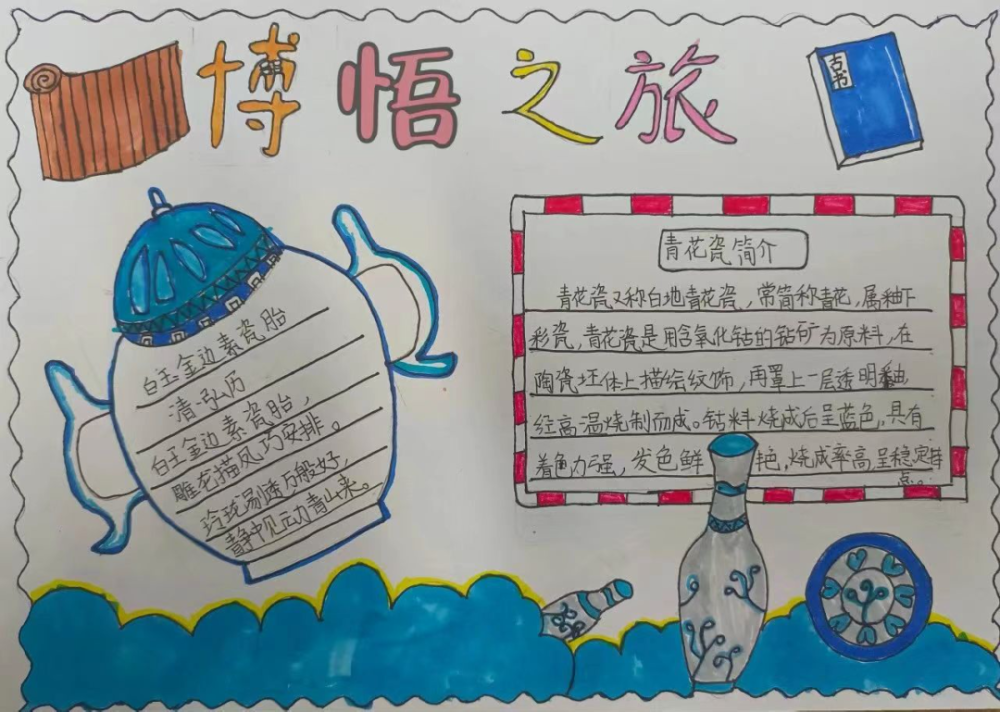 博悟之旅
古书
白玉金边素瓷胎
清 冯小历
白玉金边素瓷胎，
雕龙描凤巧安排。
玲珑剔透万般好，
静中见动青山来。
青花瓷简介
青花瓷又称白地青花瓷，常简称青花，属釉下
彩瓷，青花瓷是用含氧化钴的钴矿为原料，在
陶瓷坯体上描绘纹饰，再罩上一层透明釉
经高温烧制而成。钴料烧成后呈蓝色，具有
着色力强，发色鲜艳，烧成率高呈稳定特
点。